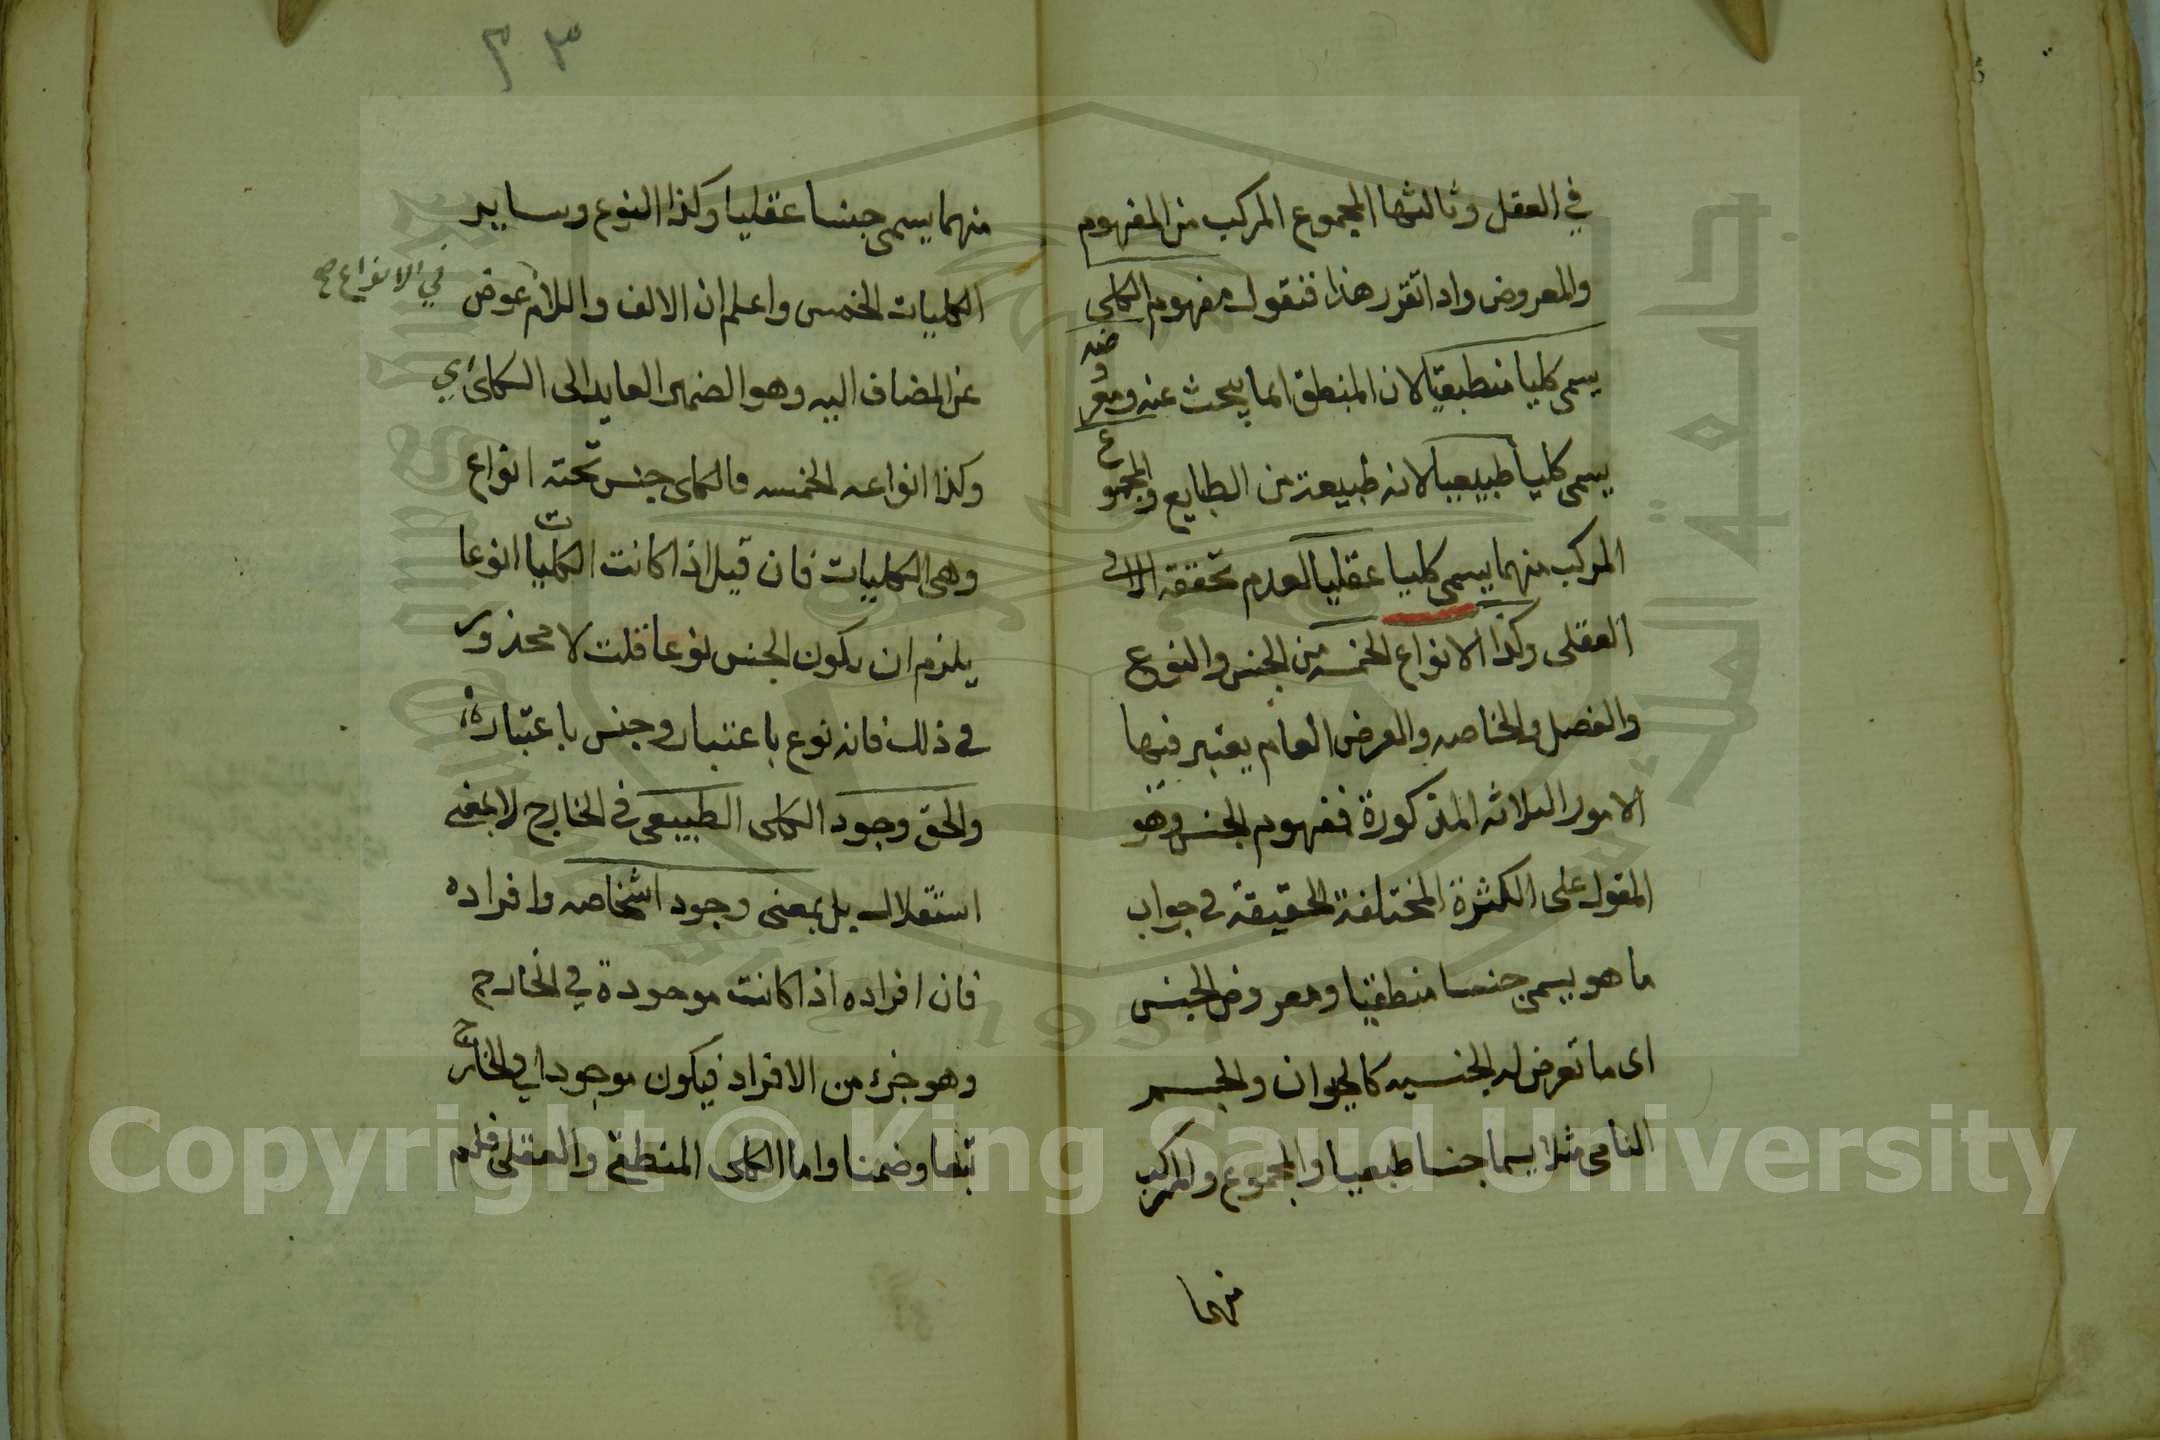 في العقل وثالثها المجموع المركب من المفهوم
والمعروض واذا تقرر هذا فنقول مفهوم الكلى
يسمى كليا منطقيا لان المنطق انما يبحث عنه ومعروضه
يسمى كليا طبيعيا لانه طبيعة من الطبايع والمجموع
المركب منهما يسمى كليا عقليا لعدم تحققه الا في
العقلى وكذا الانواع الخمسه من الجنس والنوع
والفصل والخاصه والعرض العام يعتبر فيها
الامور الثلاثه المذكورة فمفهوم الجنس وهو
المقول على الكثرة المختلفة الحقيقة في جواب
ما هو يسمى جنسا منطقيا ومعروض الجنس
اى ما تعرض له الجنسيه كالحيوان والجسم
النامى مثلا يسما جنسا طبعيا والمجموع والمركب
منهما
٢٣
منهما يسمى جنسا عقليا وكذا النوع وساير
الكليات الخمس واعلم ان الالف واللام عوض
في الانواع صح
عن المضاف اليه وهو الضمير العايد الى الكلى اي
وكذا انواعه الخمسه فالكلى جنس تحته انواع
وهى الكليات فان قيل اذا كانت الكليات انوعا
يلزم ان يكون الجنس نوعا قلت لا محذور
في ذلك فانه نوع باعتبار وجنس باعتبارة
والحق وجود الكلى الطبيعى في الخارج لا بمعنى
استقلال بل بمعنى وجود اشخاصه وافراده
فان افراده اذا كانت موجودة في الخارج
وهو جزء من الافراد فيكون موجودا في الخارج
تبعا وضمنا واما الكلى المنطقى والعقلى فلم
Copyright © King Saud University
جامعة الملك سعود
King Saud University
1957